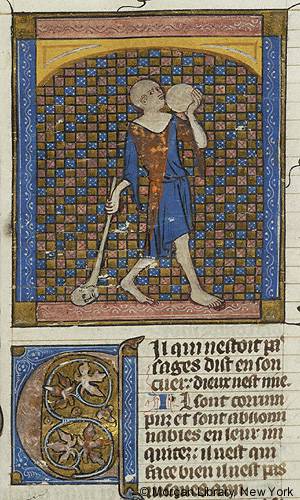 Cil qui nestoit pa
sages dist en son
cuer: dieux nest mie.
Il sont corrum
pu et sont abhomi
nables en leur ini
quitez: il nest qui
face bien il nest pas
iusques a un
© Morgan Library, New York